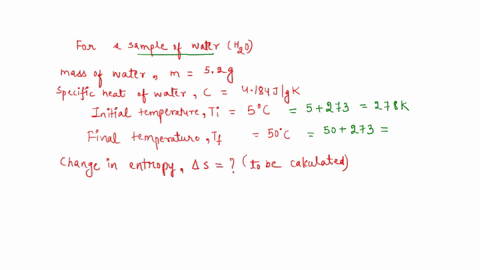 For a sample of water (H2O)
mass of water, m = 5.2g
Specific heat of water, C = 4.184J/gK
Initial temperature, Ti = 5°C = 5+273 = 278K
Final temperature, Tf = 50°C = 50+273 =
Change in entropy, ΔS = ? (to be calculated)